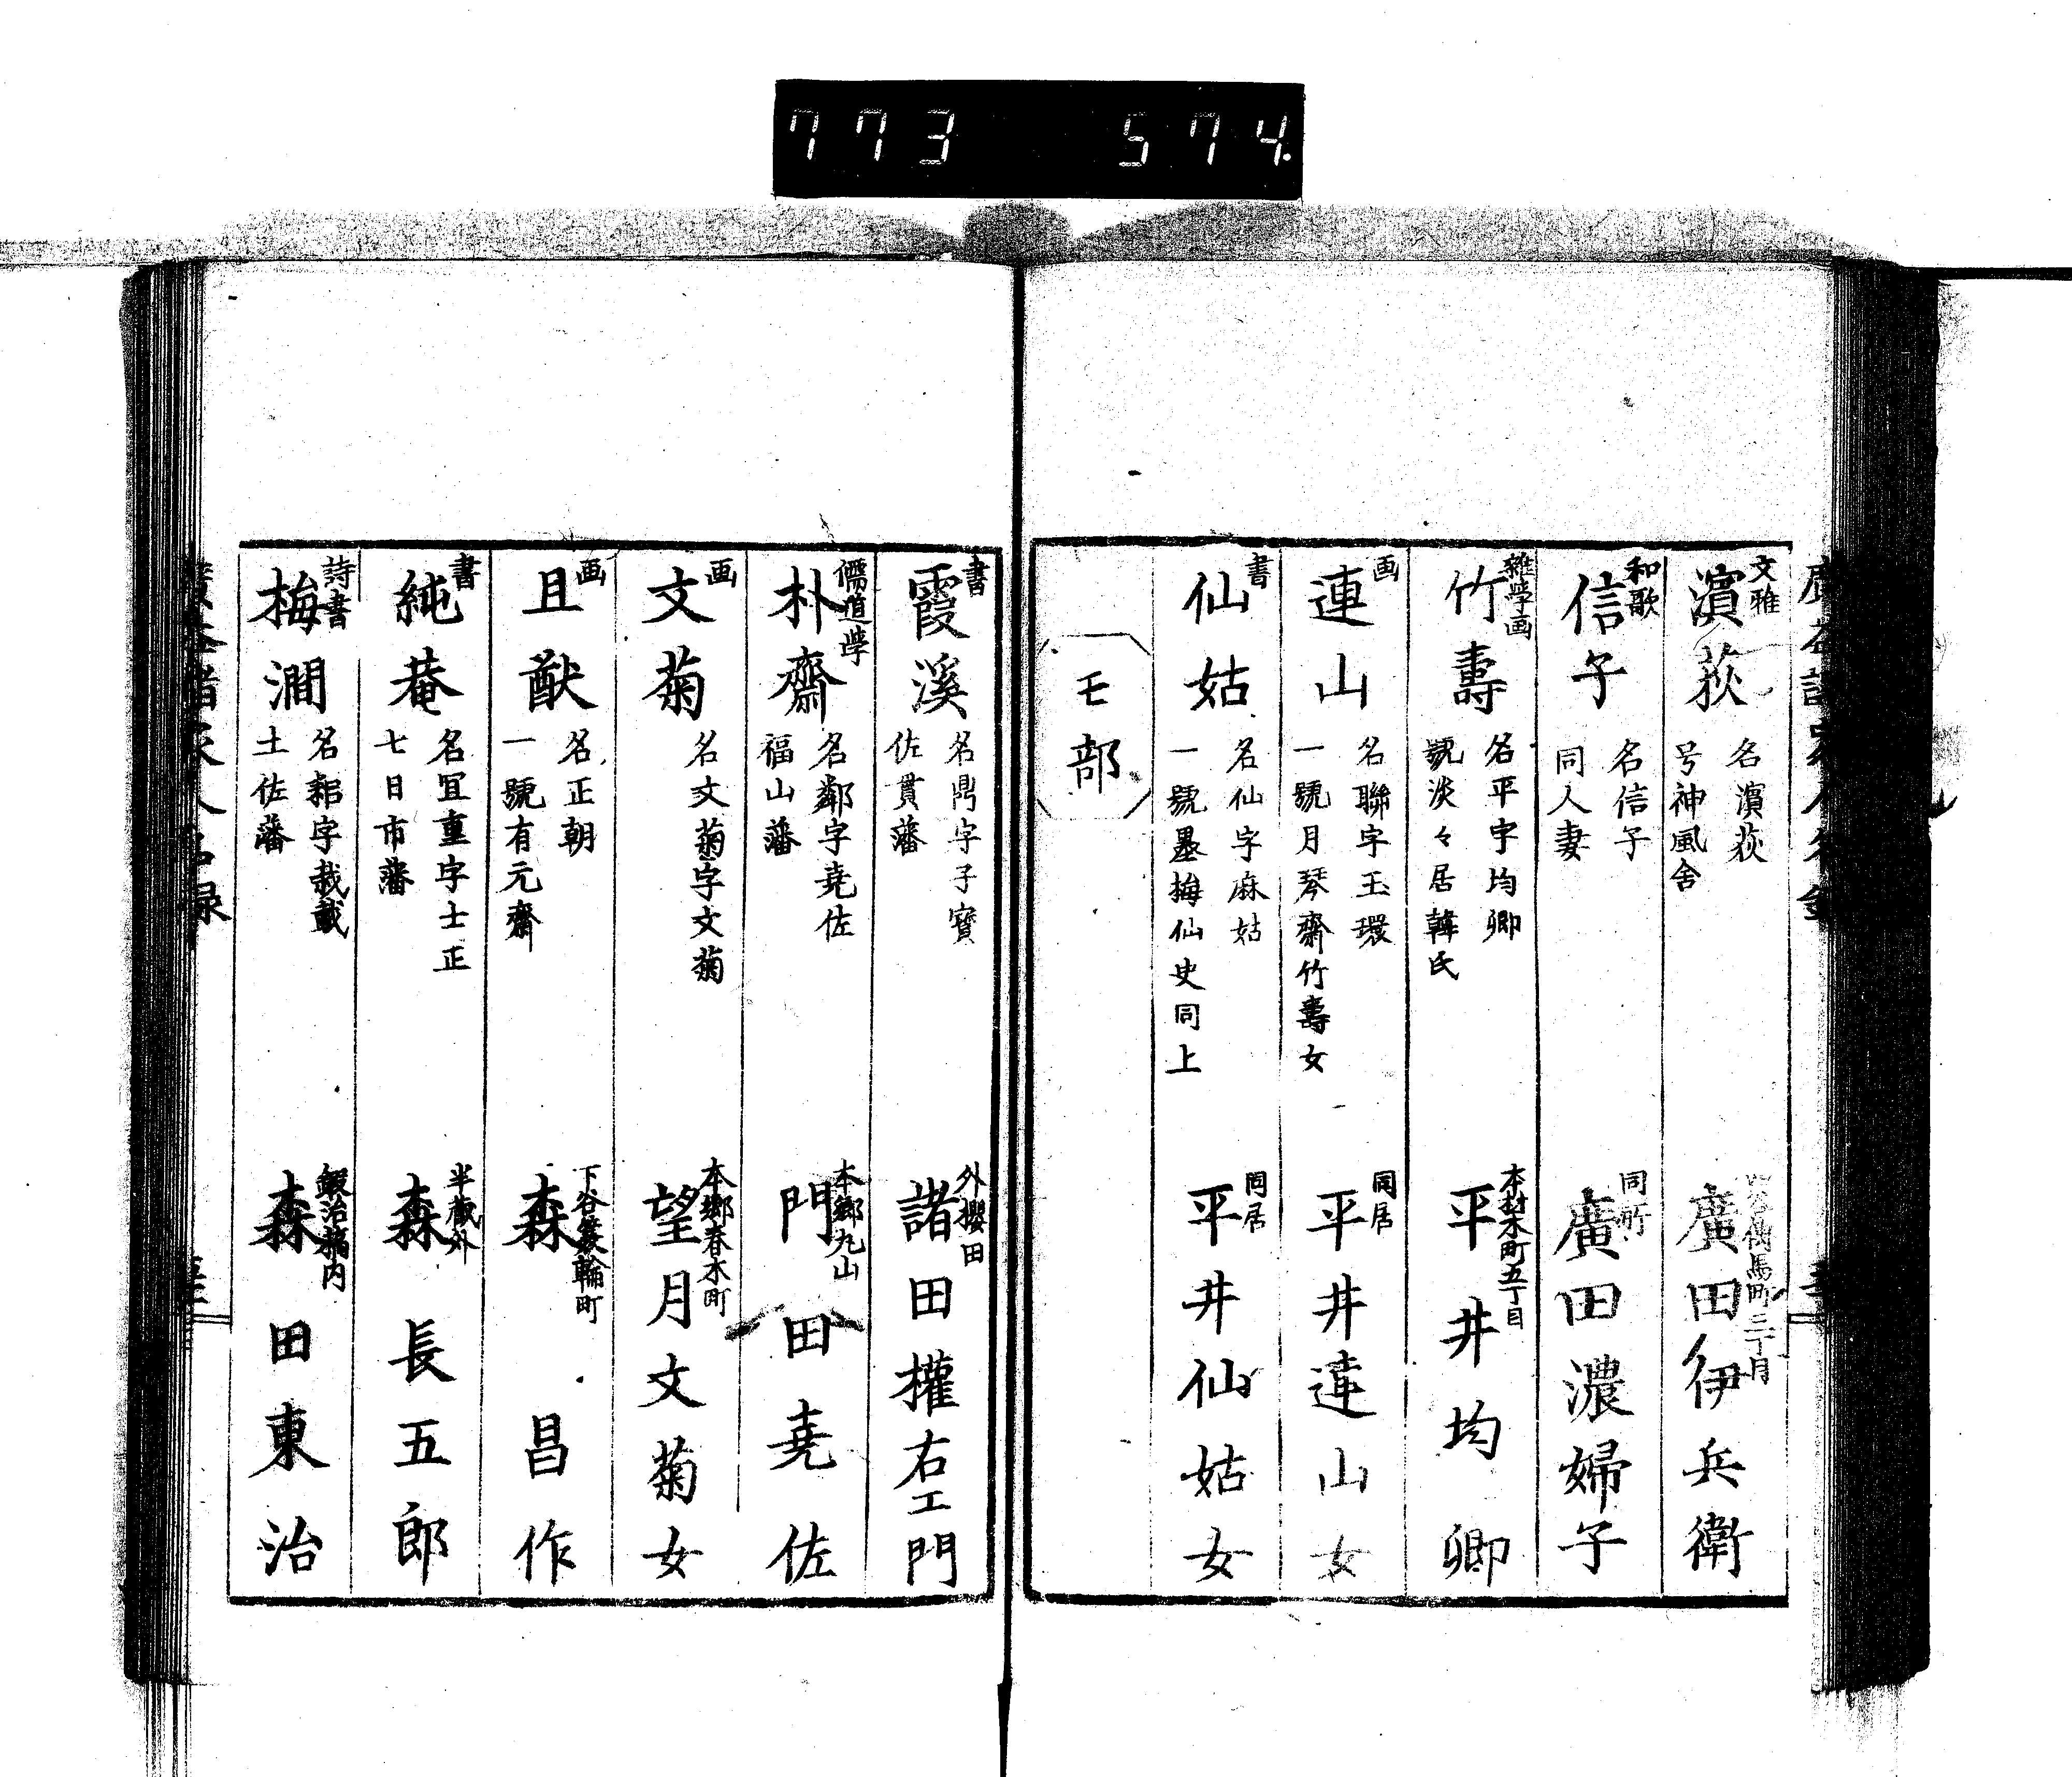 773 574.
文雅
濱荻
名濱荻
号神風舍
傳馬町二丁目
廣田伊兵衛
和歌
信子
名信子
同人妻
同所
廣田濃婦子
雜学画
竹壽
名平字均卿
號淡々居韓氏
本材木町五丁目
平井均卿
画
連山
名聯字玉環
一號月琴齋竹壽女
同居
平井連山女
書
仙姑
名仙字麻姑
一號墨梅仙史同上
同居
平井仙姑女
モ部
書
霞溪
名鼎字子寶
佐貫藩
外櫻田
諸田權右エ門
儒道学
朴齋
名鄰字堯佐
福山藩
本郷丸山
門田堯佐
画
文菊
名文菊字文菊
本郷春木町
望月文菊女
画
且猷
名正朝
一號有元齋
下谷簑輪町
森昌作
書
純菴
名冝重字士正
七日市藩
半蔵外
森長五郎
詩書
梅澗
名字哉載
土佐藩
鍛治橋内
森田東治